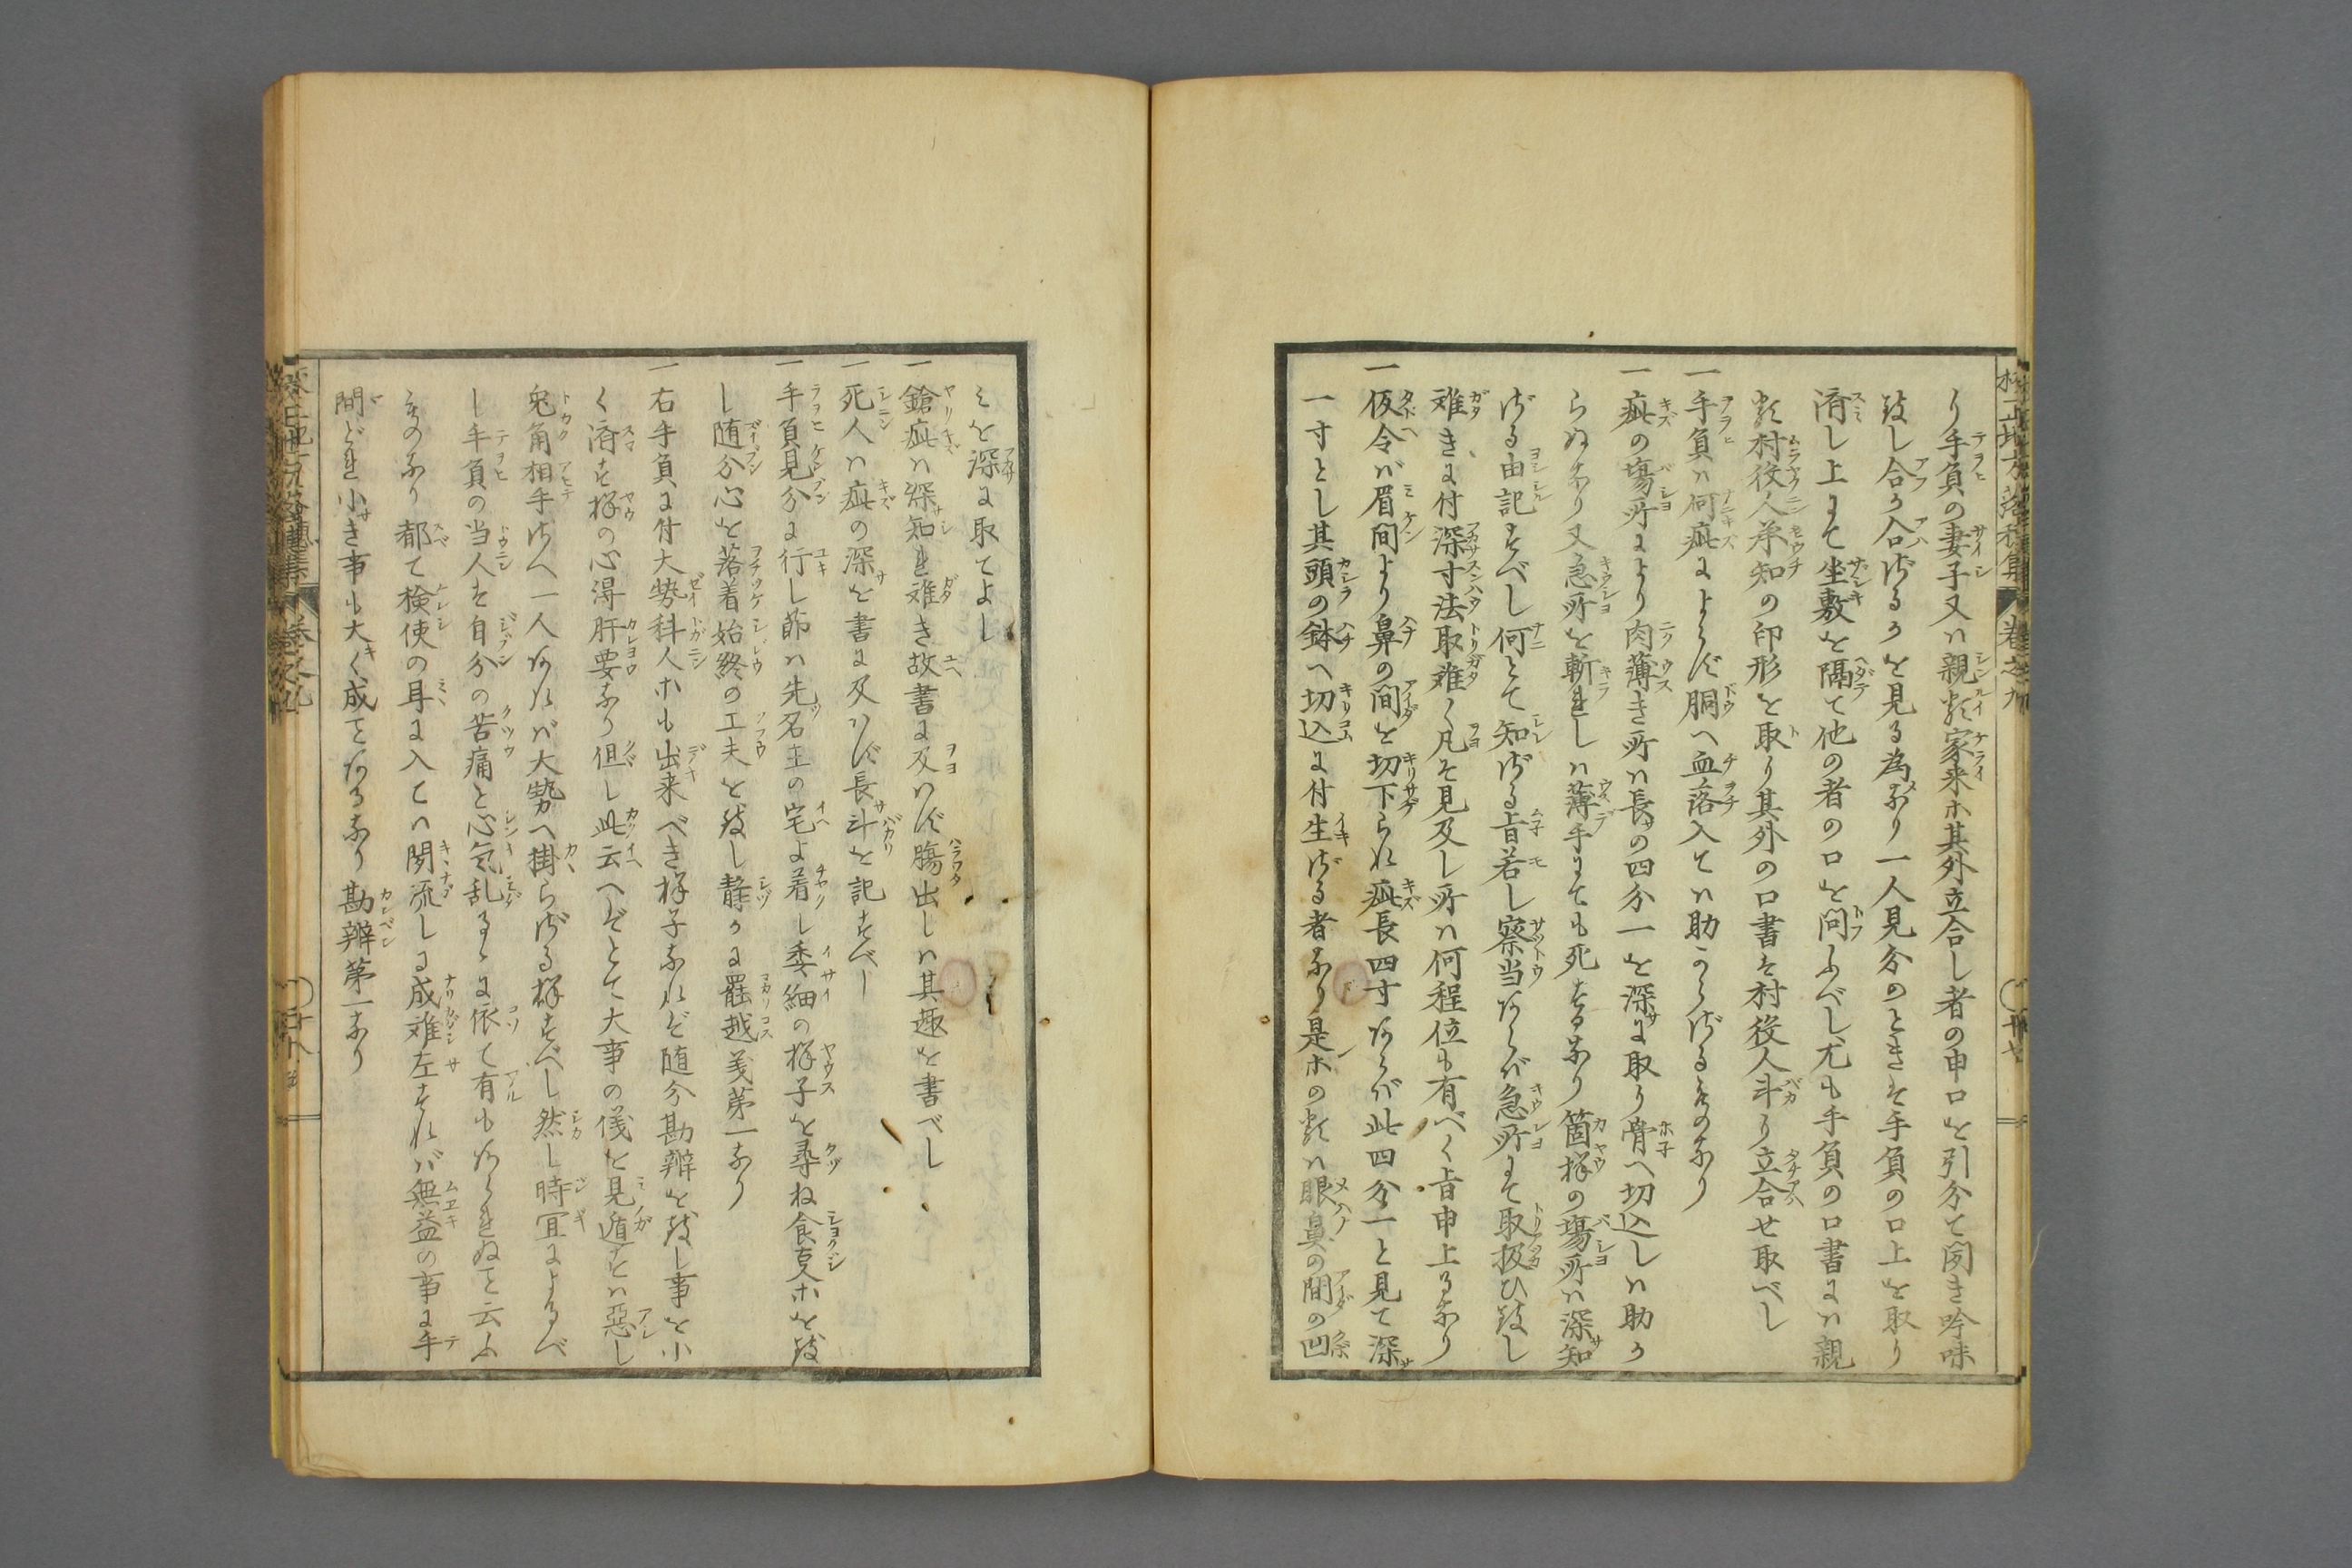 り手負の妻子又ハ親類家来ホ其外立合し者の申口を引分て聞き吟味
致し合うか合ざるうを見る為なり一人見分のときは手負の口上を取り
済し上にて坐敷を隔て他の者の口を問ふべし尤も手負の口書にハ親
類村役人承知の印形を取り其外の口書は村役人斗り立合せ取べし
一手負ハ何疵によらず胴へ血落入てハ助からざるものなり
一疵の場所により肉薄き所ハ長の四分一を深に取り骨へ切込しハ助か
らぬなり又急所を斬れしハ薄手にても死するなり箇様の場所ハ深知
ざる由記すべし何とて知ざる旨若し察当あらば急所にて取扱ひ致し
難きに付深寸法取難く凡を見及し所ハ何程位も有べく旨申上るなり
一仮令バ眉間より鼻の間を切下られ疵長四寸あらば此四分一と見て深
一寸とし其頭の鉢へ切込に付生ざる者なり是ホの類ハ眼鼻の間の凹
みを深に取てよし
一鎗疵ハ深知れ難き故書に及ハず膓出しハ其趣を書べし
一死人ハ疵の深を書に及ハず長斗を記すべし
一手負見分に行し節ハ先名主の宅よ着し委細の様子を尋ね食叓ホを致
し随分心を落着始終の工夫を致し静かに罷越義第一なり
一右手負に付大勢科人ホも出来べき様子なれど随分勘辨を致し事を小
く済す様の心得肝要なり但し此云へぞとて大事の儀を見遁すハ惡し
兎角相手ざへ一人あれバ大勢へ掛らざる様すべし然し時冝によるべ
し手負の当人は自分の苦痛と心気乱るゝに依て有もあられぬを云ふ
ものなり都て検使の耳に入てハ聞流しに成難左すれバ無益の事に手
間どれ小き事も大く成てあるなり勘辨第一なり